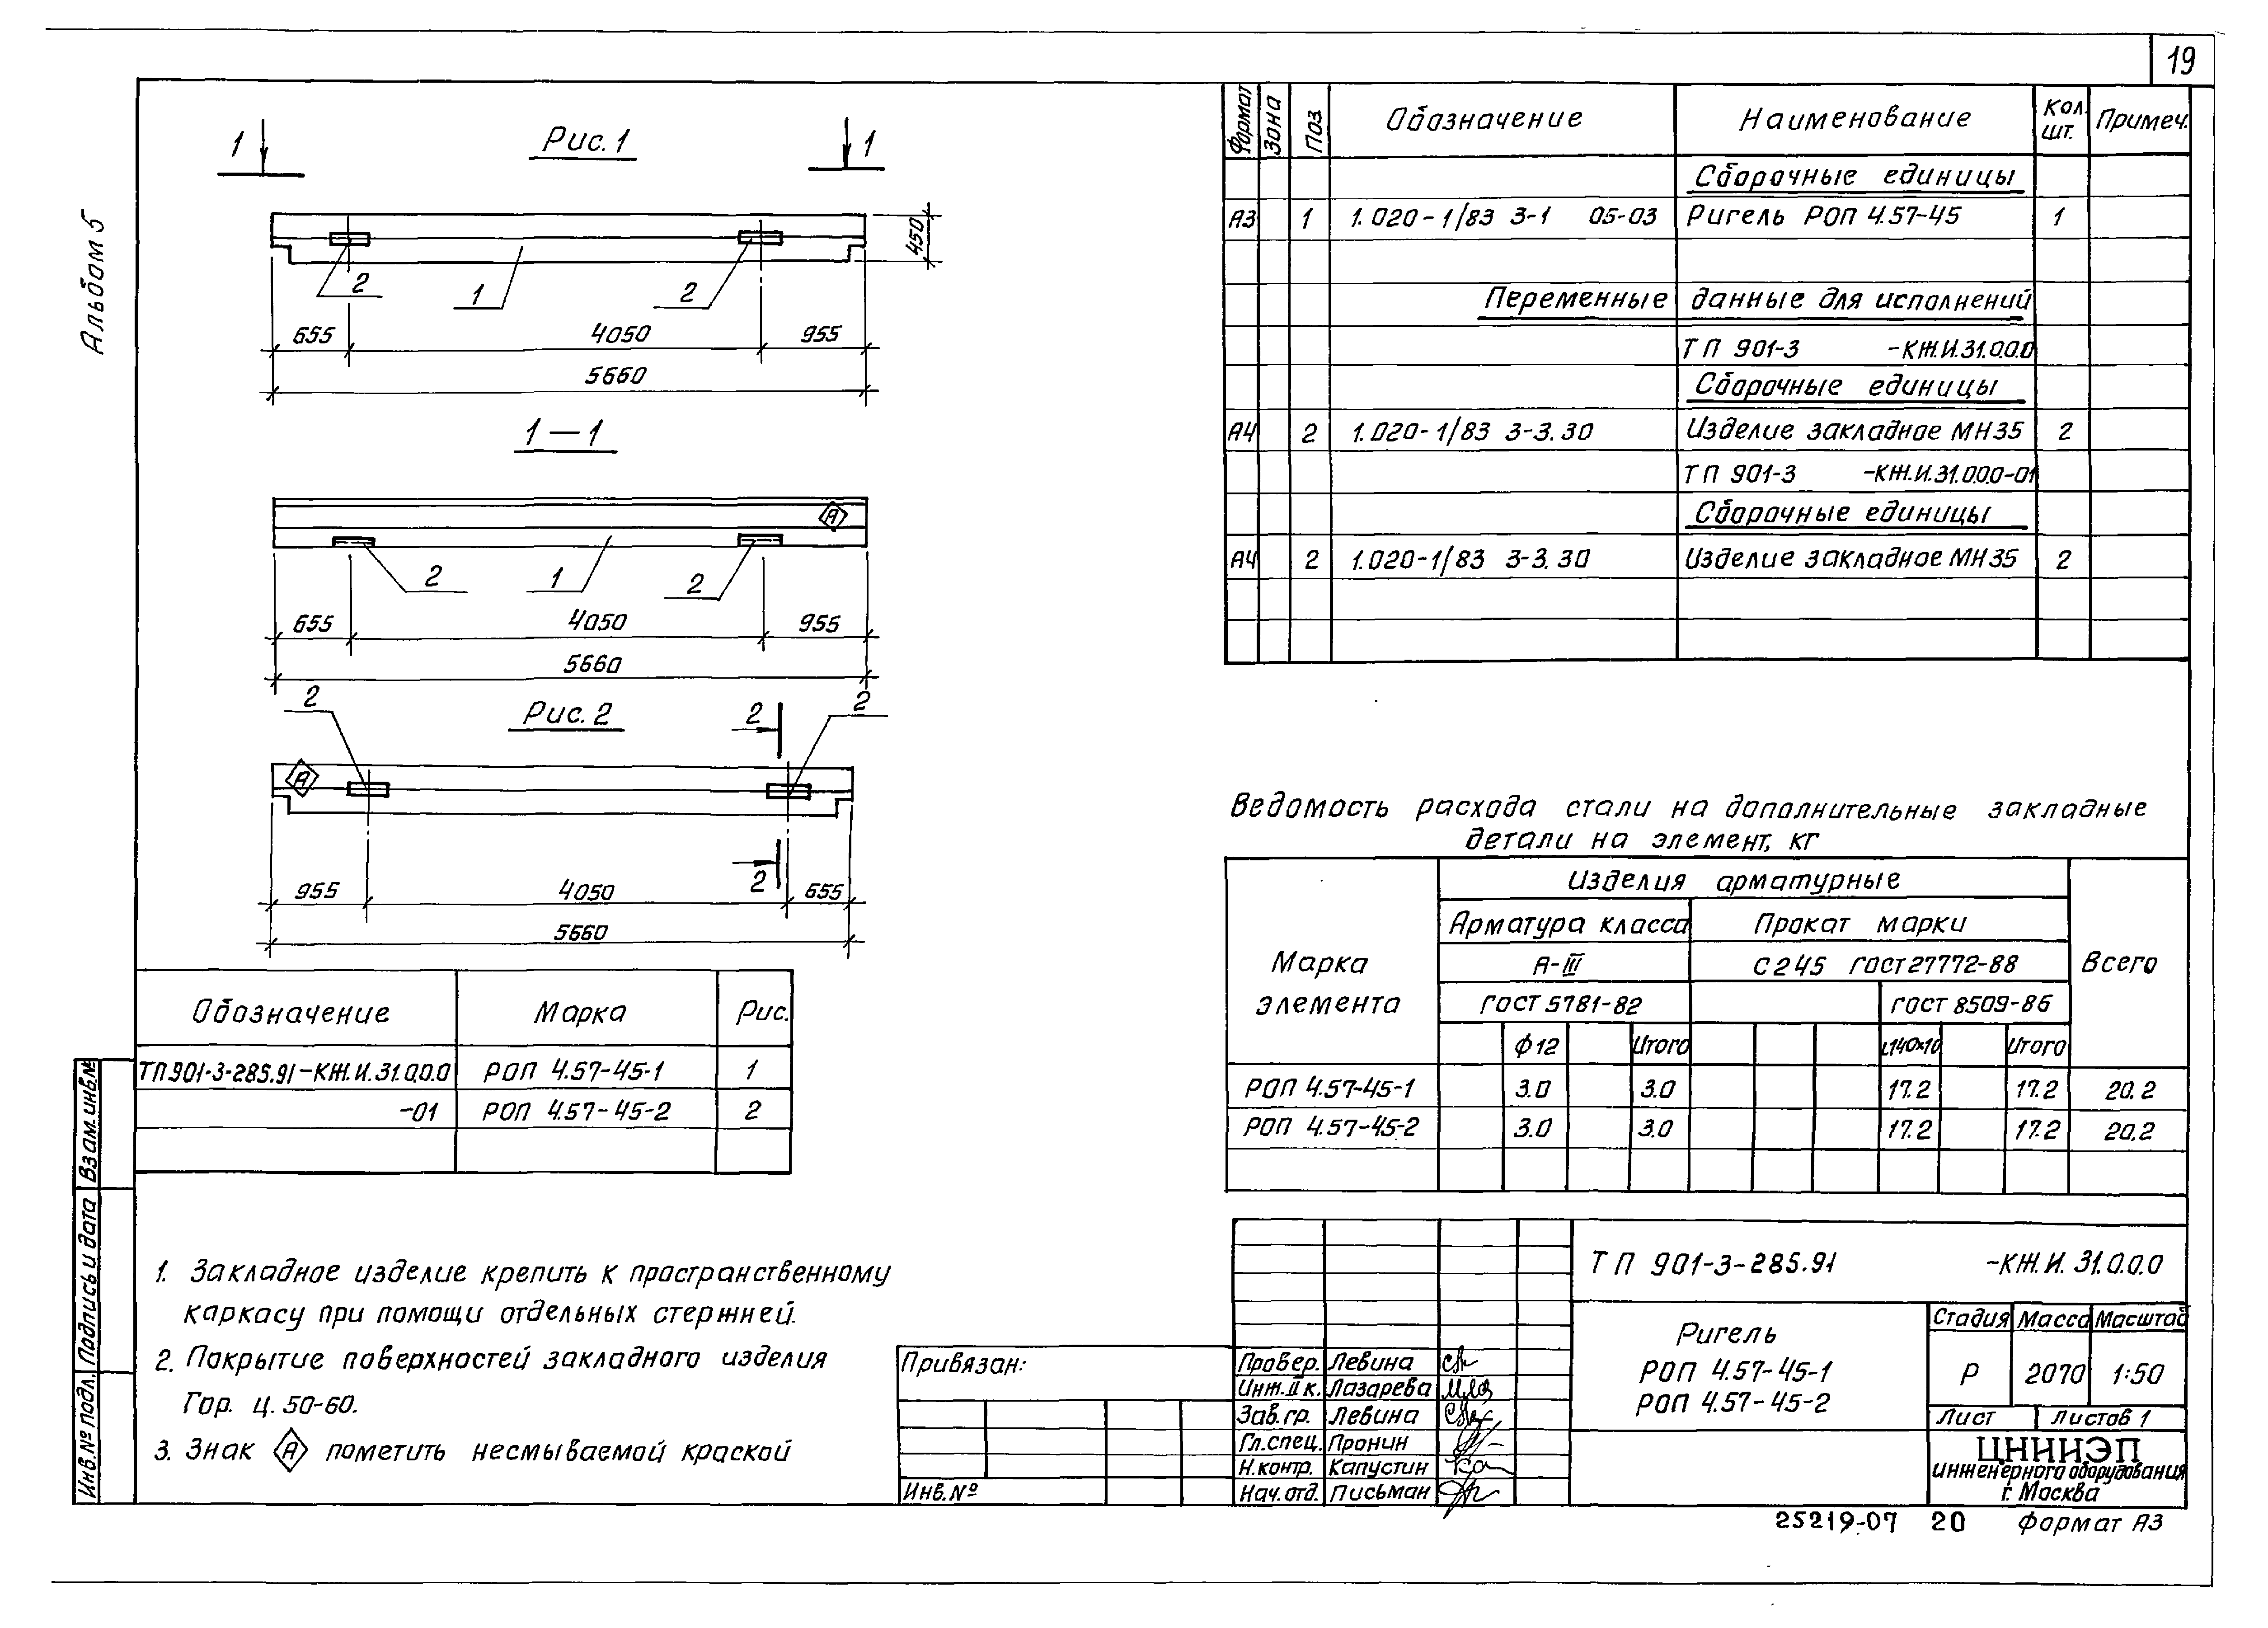 19
Альбом 5
Рис. 1
1 1
450
2 1 2
655 4050 955
5660
1—1
А
2 1 2
655 4050 955
5660
Рис. 2
2 2 2
А
2
955 4050 655
5660
Обозначение Марка Рис.
ТП901-3-285.91-КЖ.И.31.0.0.0 РОП 4.57-45-1 1
-01 РОП 4.57-45-2 2
1. Закладное изделие крепить к пространственному
каркасу при помощи отдельных стержней.
2. Покрытие поверхностей закладного изделия
Гор. Ц. 50-60.
3. Знак А пометить несмываемой краской
Формат Зона Поз Обозначение Наименование Кол. шт. Примеч.
Сборочные единицы
А3 1 1.020-1/83 3-1 05-03 Ригель РОП 4.57-45 1
Переменные данные для исполнений
ТП 901-3 -КЖ.И.31.0.0.0
Сборочные единицы
А4 2 1.020-1/83 3-3.30 Изделие закладное МН35 2
ТП 901-3 -КЖ.И.31.0.0.0-01
Сборочные единицы
А4 2 1.020-1/83 3-3.30 Изделие закладное МН35 2
Ведомость расхода стали на дополнительные закладные
детали на элемент, кг
Марка элемента
Изделия арматурные
Арматура класса Прокат марки
А-III С245 ГОСТ27772-88 Всего
ГОСТ 5781-82 ГОСТ 8509-86
Ф12 Итого L140×10 Итого
РОП 4.57-45-1 3.0 3.0 17.2 17.2 20.2
РОП 4.57-45-2 3.0 3.0 17.2 17.2 20.2
ТП 901-3-285.91 -КЖ.И. 31.0.0.0
Ригель
РОП 4.57-45-1
РОП 4.57-45-2
Стадия Масса Масштаб
Р 2070 1:50
Лист Листов 1
ЦНИИЭП
инженерного оборудования
г. Москва
Провер. Левина
Инж. II к. Лазарева
Зав. гр. Левина
Гл. спец. Пронин
Н. контр. Капустин
Нач. отд. Письман
Привязан:
Инв. №
Инв. № подл. Подпись и дата Взам. инв. №
25219-07 20 Формат А3